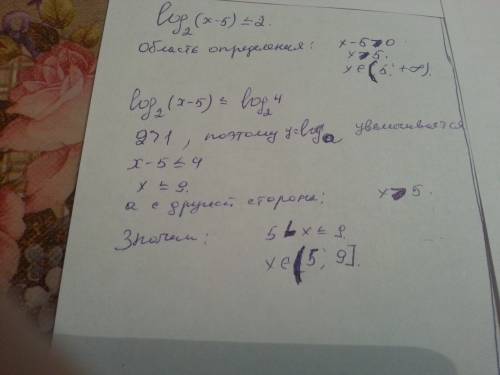 log₂(x-5) ≤ 2.
Область определения: x-5>0
x>5.
x∈(5; +∞).
log₂(x-5) ≤ log₂4
2>1, поэтому y=logₐ увеличивается
x-5 ≤ 4
x ≤ 9.
а с другой стороны: x>5.
Значит: 5<x≤9
x∈(5; 9].